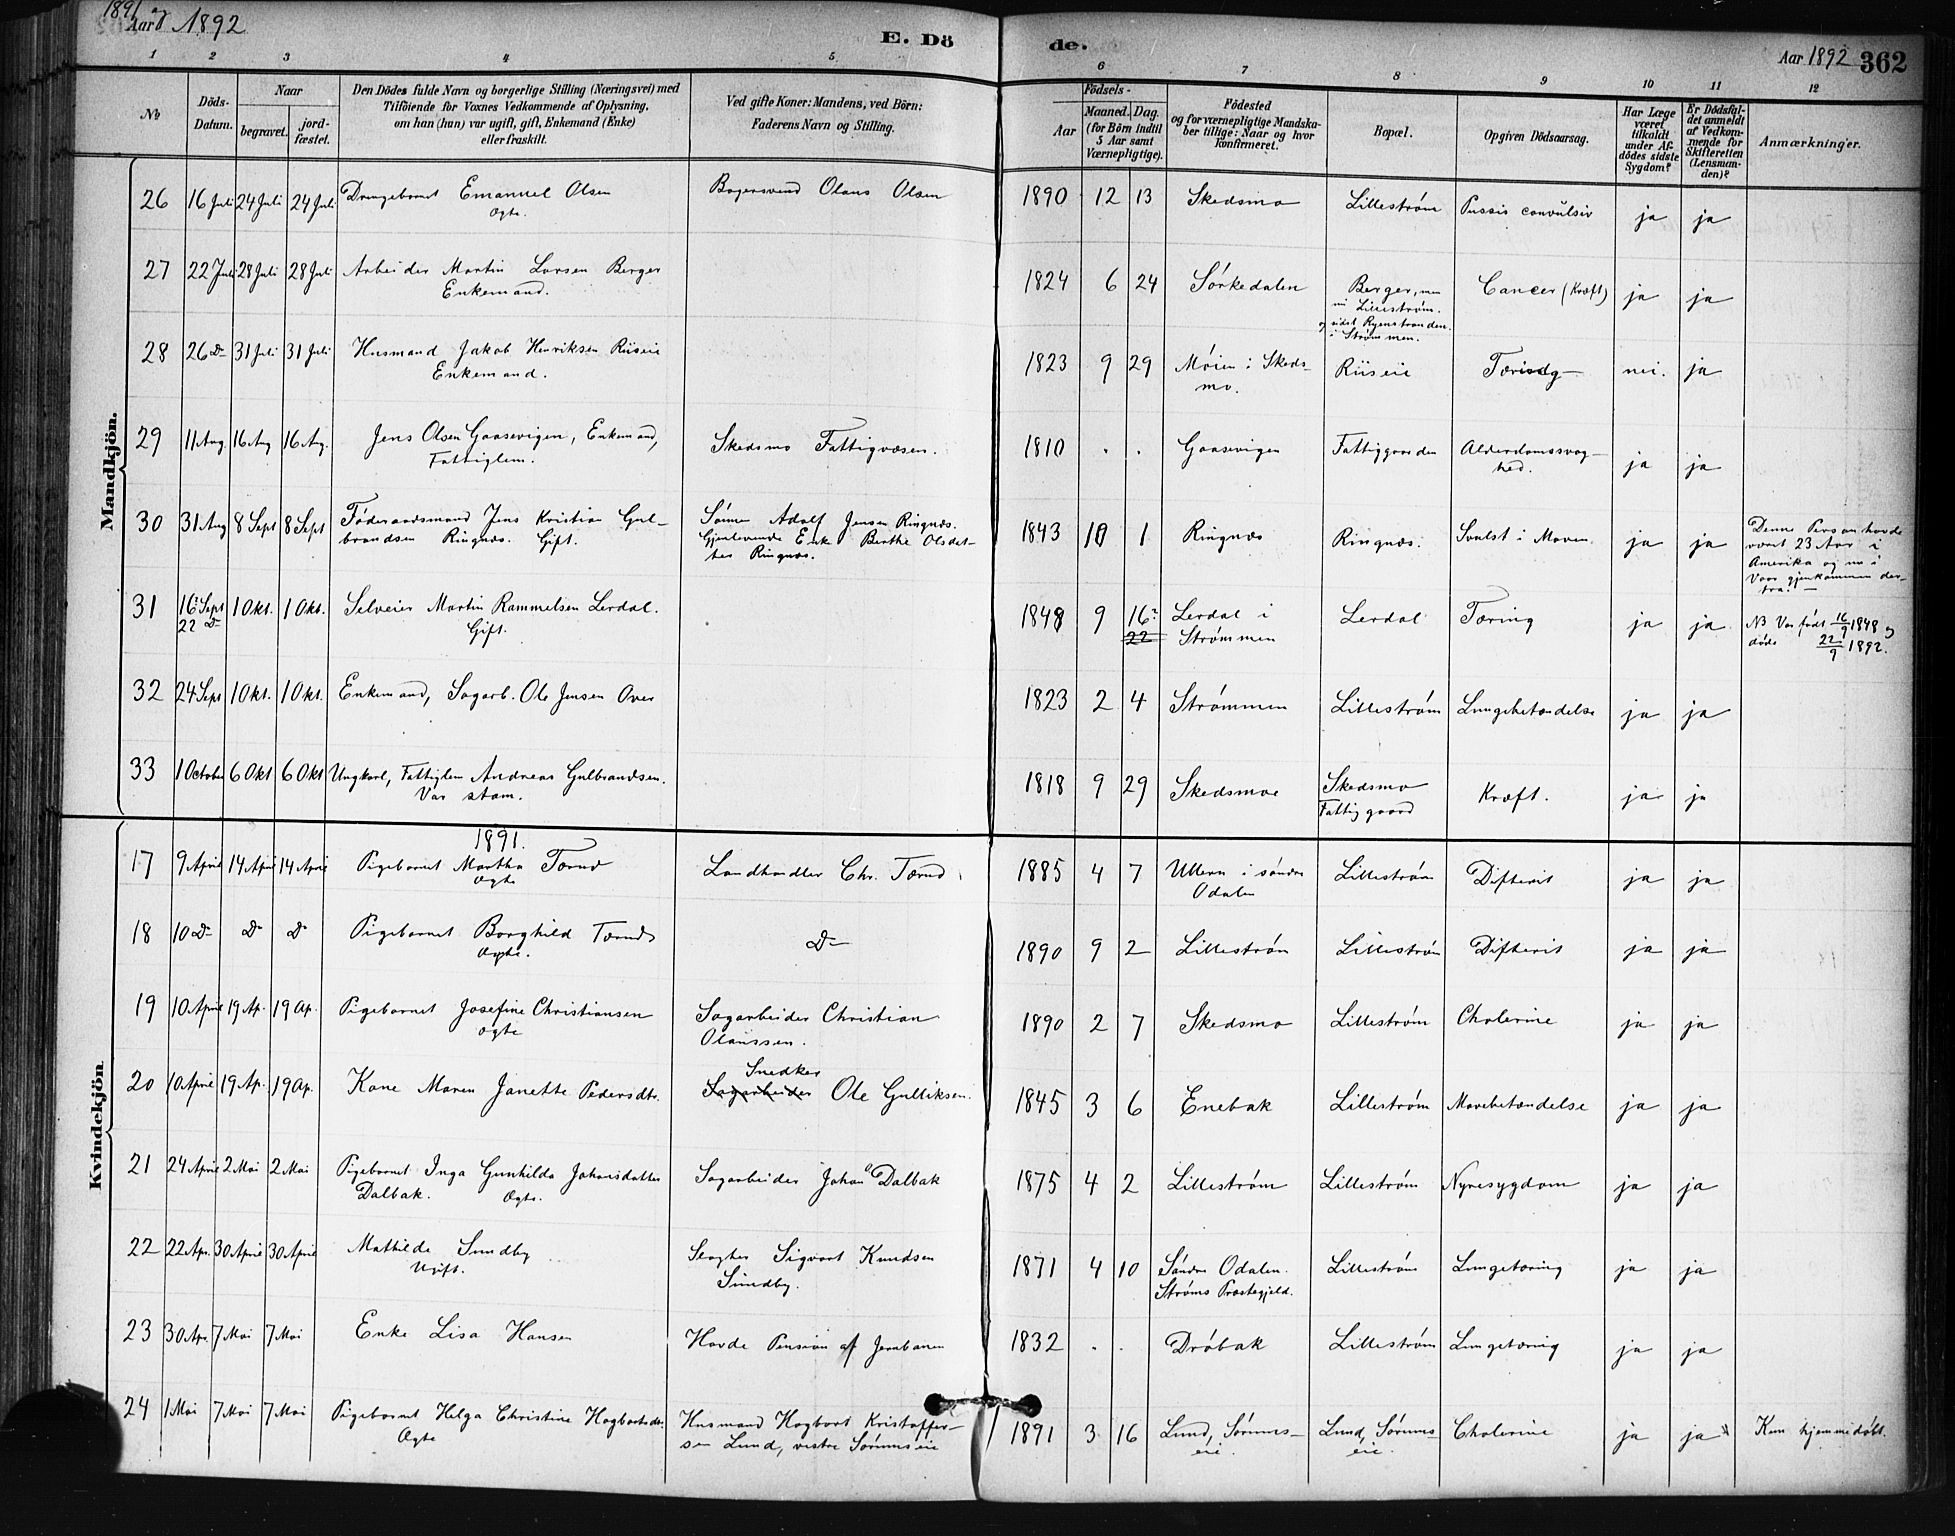 1891 og
Aar 1892
E. Dö de.
Aar 1892 362
1 2 3 4 5 6 7 8 9 10 11 12
No
Döds-Datum.
Naar
begravet.
jord-fæstet.
Den Dödes fulde Navn og borgerlige Stilling (Næringsvei) med
Tilföiende for Voxnes Vedkommende af Oplysning,
om han (hun) var ugift, gift, Enkemand (Enke)
eller fraskilt.
Ved gifte Koner: Mandens, ved Börn:
Faderens Navn og Stilling.
Födsels-
Aar
Maaned. Dag.
(for Börn indtil
5 Aar samt
Værnepligtige).
Födested
og for værnepligtige Mandska-
ber tillige: Naar og hvor
konfirmeret.
Bopæl.
Opgiven Dödsaarsag.
Har Læge
været
tilkaldt
under Af-
dödes sidste
Sygdom?
Er Dödsfal-
det anmeldt
af Vedkom-
mende for
Skifteretten
(Lensman-
den)?
Anmærkninger.
Mandkjön.
26 16 Juli 24 Juli 24 Juli Drengebarnet Emanuel Olsen Bagersvend Olaus Olsen 1890 12 13 Skedsmo Lilleström Pussis convulsiv ja ja
Ægte.
27 22 Juli 28 Juli 28 Juli Arbeider Martin Larsen Berger 1824 6 24 Sørkedalen Berger, Cancer (Kræft) ja ja
Enkemand. Lillestrøm.
sidst Ryenstranden
i Strømmen.
28 26 Do 31 Juli 31 Juli Husmand Jakob Henriksen Riiseie 1823 9 29 Møien i Skeds- Riiseie Tæring nei. ja
Enkemand. mo.
29 11 Aug. 16 Aug 16 Aug. Jens Olsen Gaasevigen, Enkemand, Skedsmo Fattigvæsen. 1810 . . Gaasevigen Fattiggaarden Alderdomssvag- ja ja
Fattiglem. hed.
30 31 Aug 8 Sept 8 Sept Føderaadsmand Jens Kristian Gul- Sønnen Adolf Jensen Ringnæs. 1843 10 1 Ringnæs Ringnæs. Svulst i Maven. ja ja Denne Person havde
brandsen Ringnæs. Gift. Gjenlevende Enke Berthe Olsdat- været 23 Aar i
ter Ringnæs. Amerika og nu i
Vaar gjenkommen der-
fra. —
31 16 Sept 1 Okt. 1 Okt. Selveier Martin Rammelsen Lerdal. 1848 9 16 Lerdal i Lerdal Tæring ja ja NB Var født 16/9 1848 og
22 Do Gift. 22 Strømmen døde 22/9 1892.
32 24 Sept 1 Okt. 1 Okt. Enkemand, Sagarb. Ole Jensen Aver 1823 2 4 Strømmen Lillestrøm Lungebetændelse ja ja
33 1 October 6 Okt 6 Okt Ungkarl, Fattiglem Andreas Gulbrandsen. 1818 9 29 Skedsmoe Skedsmo Kræft. ja ja
Var stum. Fattiggaard
Kvindekjön
1891.
17 9 April 14 April 14 April Pigebarnet Martha Tærud Landhandler Chr. Tærud 1885 4 7 Ullern i søndre Lillestrøm Difterit ja ja
Ægte Odalen
18 10 Do Do Do Pigebarnet Borghild Tærud Do 1890 9 2 Lillestrøm Lillestrøm Difterit ja ja
Ægte.
19 10 April 19 Ap. 19 Ap. Pigebarnet Josefine Christiansen Sagarbeider Christian 1890 2 7 Skedsmo Lillestrøm Cholerine ja ja
Ægte Olaussen.
20 10 April 19 Ap. 19 Ap. Kone Maren Janette Pedersdtr. Snedker
Sagarbeider Ole Gulliksen. 1845 3 6 Enebak Lillestrøm Mavebetændelse ja ja
21 24 April 2 Mai 2 Mai Pigebarnet Inga Gunhilda Johansdatter Sagarbeider Johan Dalbak 1875 4 2 Lillestrøm Lillestrøm Nyresygdom ja ja
Dalbak. Ægte.
22 22 Apr. 30 April 30 April Mathilde Sundby Slagter Sigvart Knudsen 1871 4 10 Søndre Odalen. Lillestrøm Lungetæring ja ja
Ugift. Sundby. Strøms Præstegjeld.
23 30 Apr. 7 Mai 7 Mai Enke Lisa Hansen Havde Pension af Jernbanen 1832 . . Drøbak Lillestrøm Lungetæring ja ja
24 1 Mai 7 Mai 7 Mai Pigebarnet Helga Christine Hagbartsdtr. Husmand Hagbart Kristoffer- 1891 3 16 Lund, Sørums- Lund, Sørums- Cholerine ja ja Kun hjemmedøbt.
Ægte sen Lund, vestre Sørumseie eie. eie.